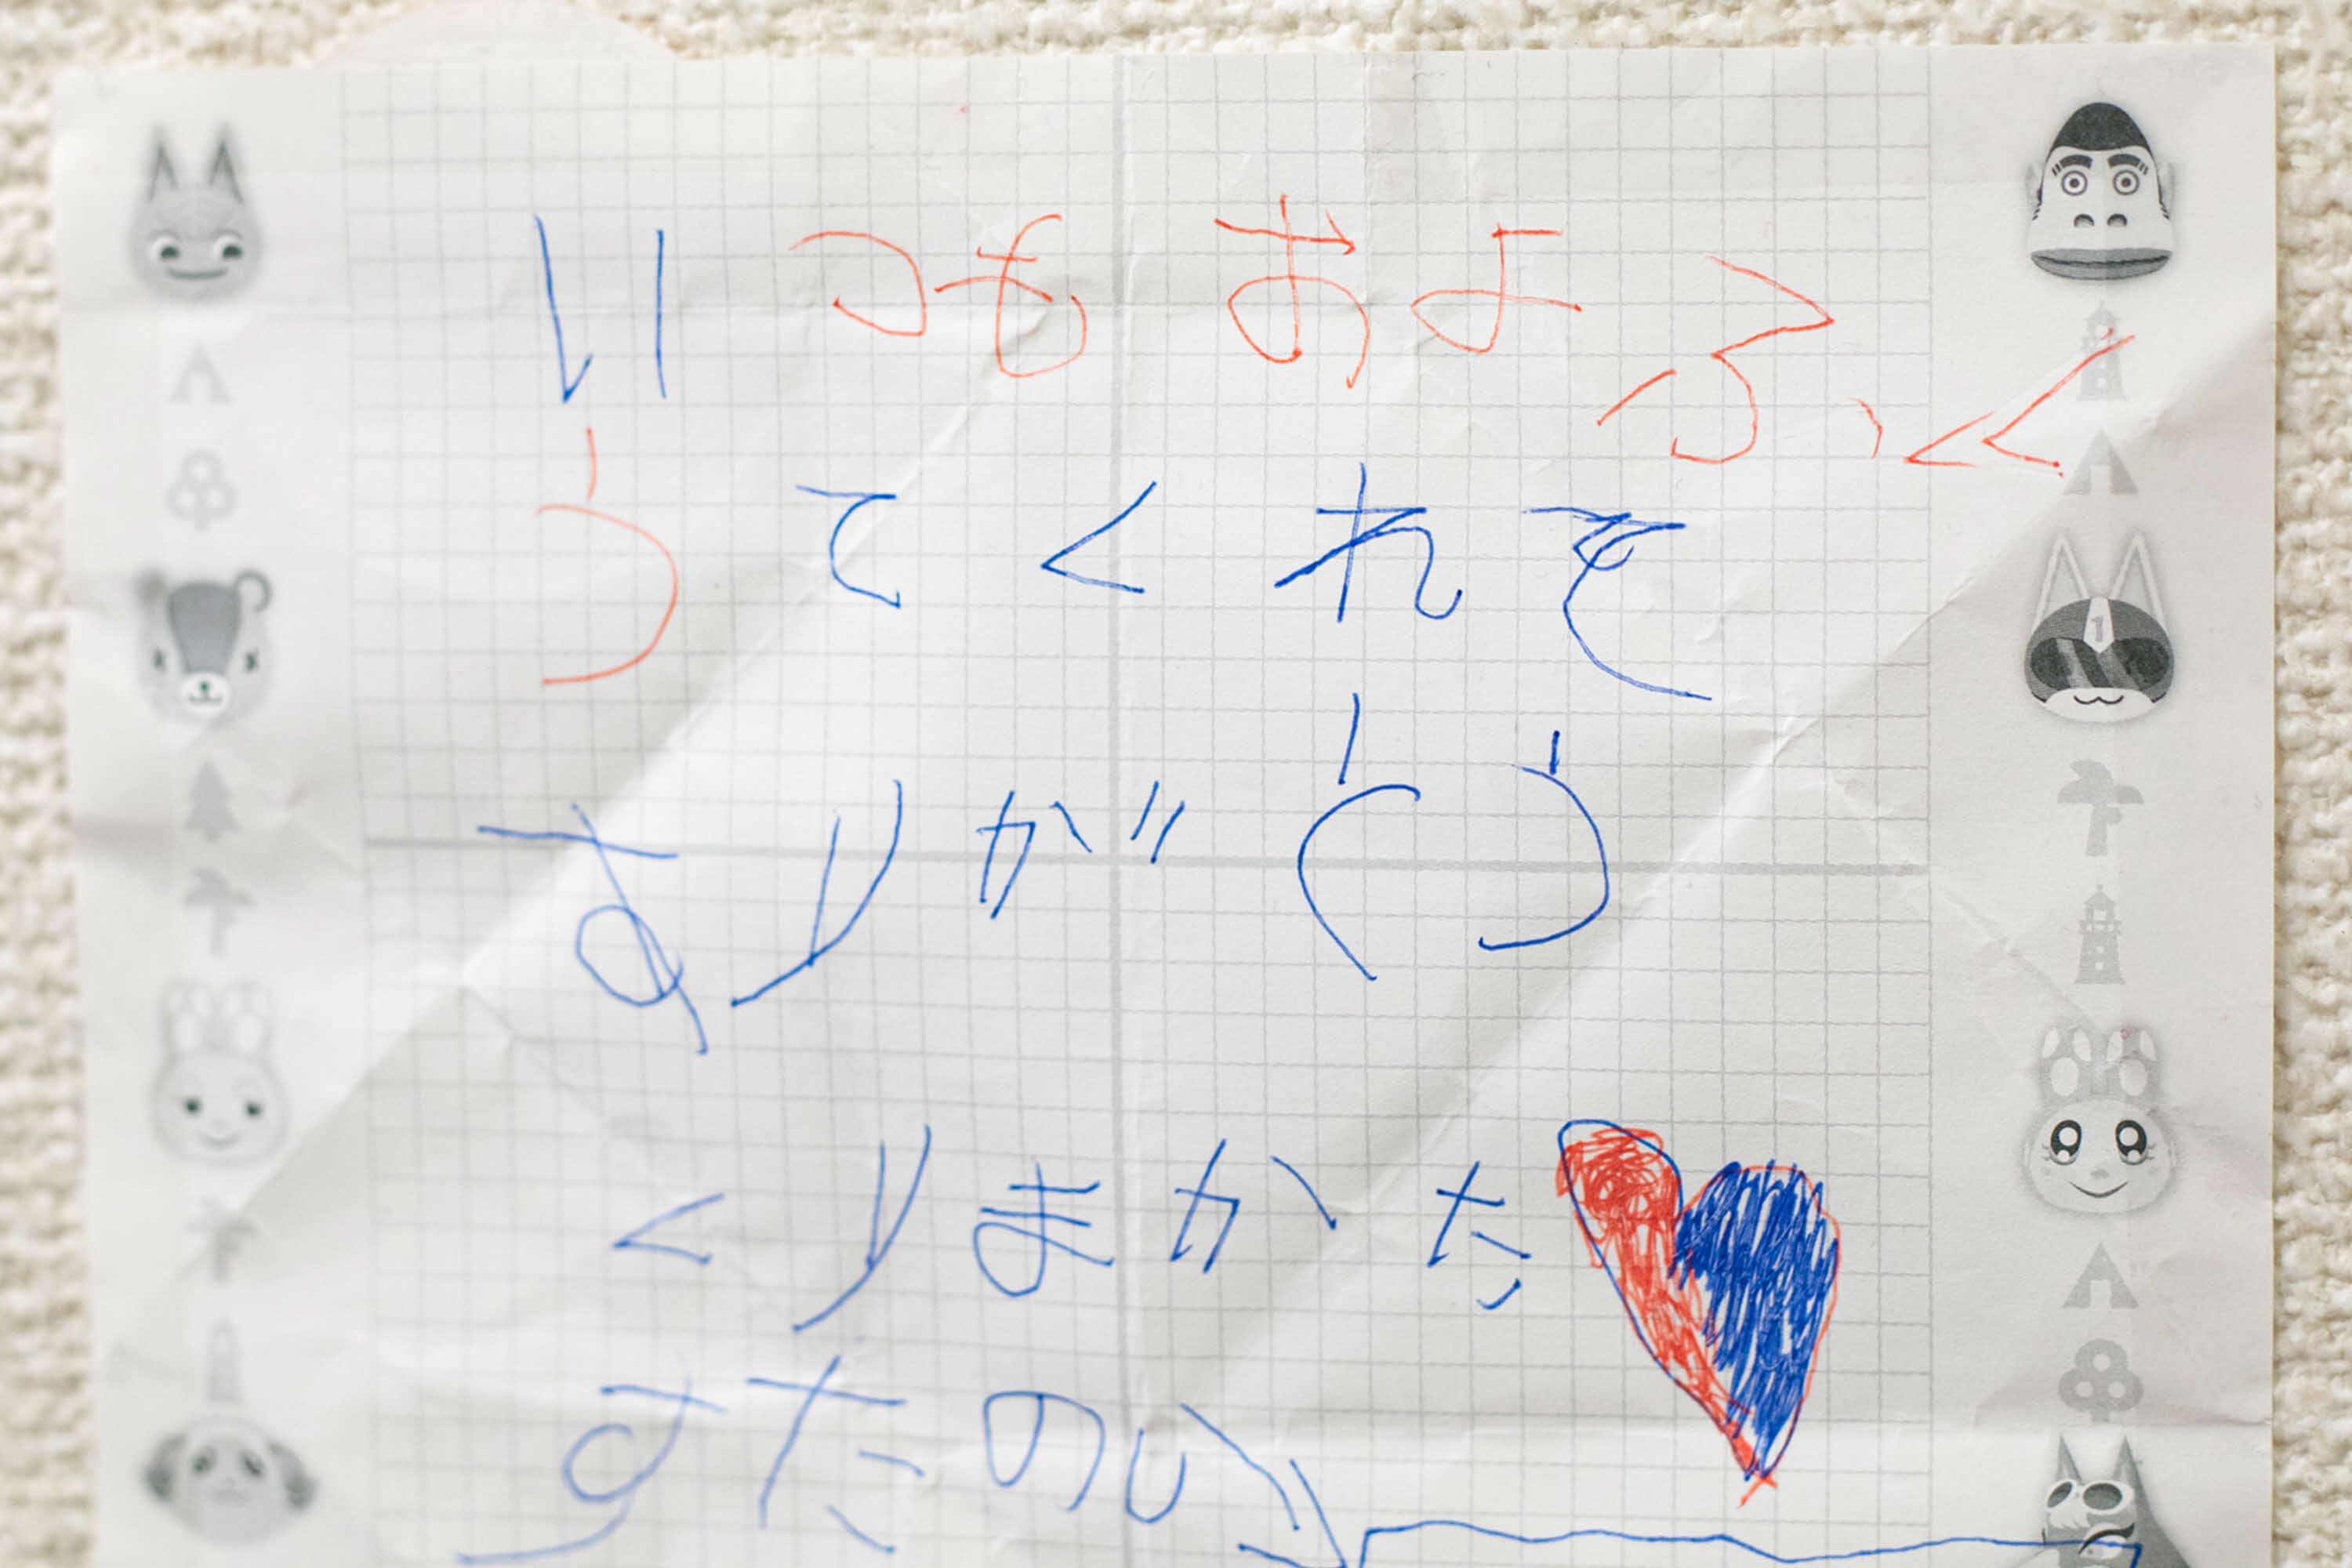 いつもおよふく
うてくれて
ありがとう
くりまかた
すたのし